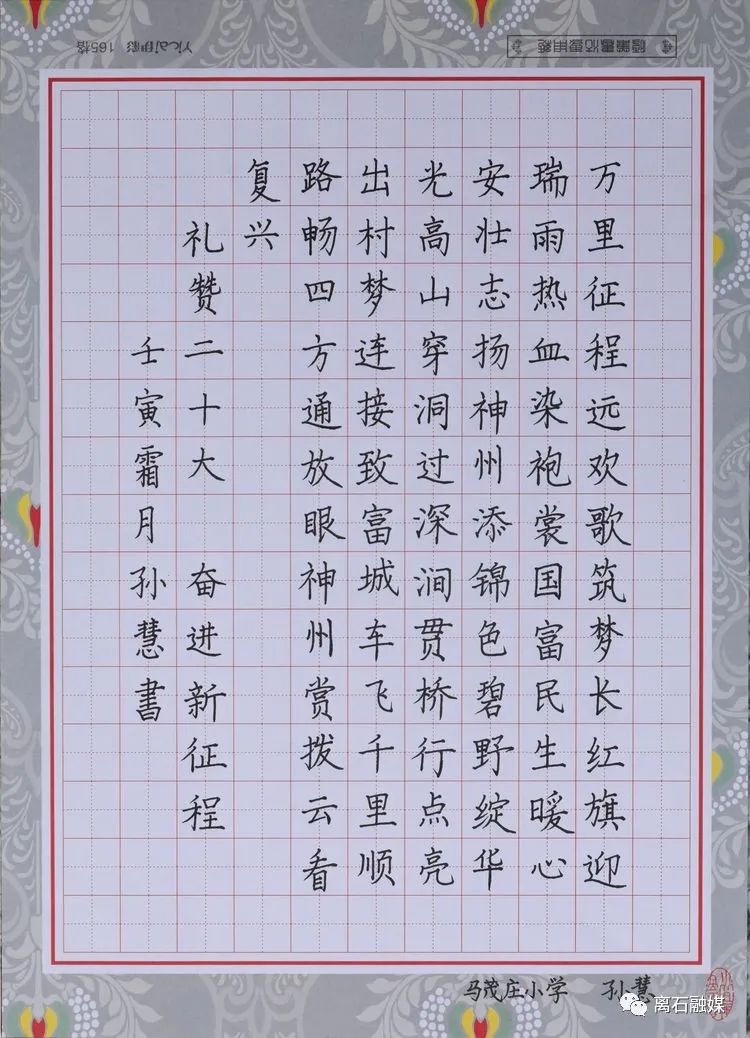 万里征程远欢歌筑梦长红旗迎
瑞雨热血染袍裳国富民生暖心
安壮志扬神州添锦色碧野绽华
光高山穿洞过深涧贯桥行点亮
出村梦连接致富城车飞千里顺
路畅四方通放眼神州赏拨云看
复兴
礼赞二十大 奋进新征程
壬寅霜月孙慧書
马茂庄小学 孙慧
离石融媒
Yicai伊彩 165格